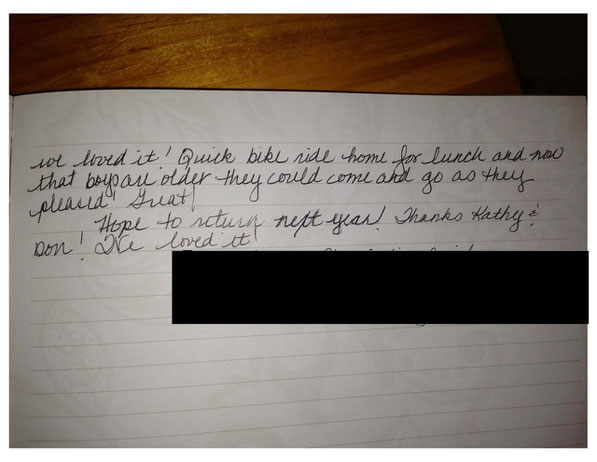 we loved it! Quick bike ride home for lunch and now
that boys are older they could come and go as they
pleased! Great!
Hope to return next year! Thanks Kathy &
Don! We loved it!